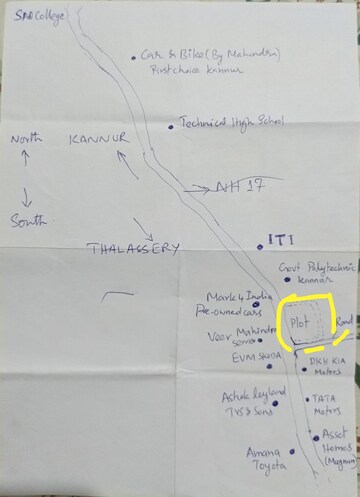 SN College
Car & Bike (By Mahindra)
First choice Kannur
Technical High School
North
KANNUR
NH 17
South
THALASSERY
ITI
Govt Polytechnic
Kannur
Mark 4 India
Pre-owned cars
Plot
Road
Veer Mahindra
EVM SKODA
DKH KIA
Motors
Ashok leyland
TVS & Sons
TATA
Motors
Asset
Homes
(Magnum)
Amana
Toyota